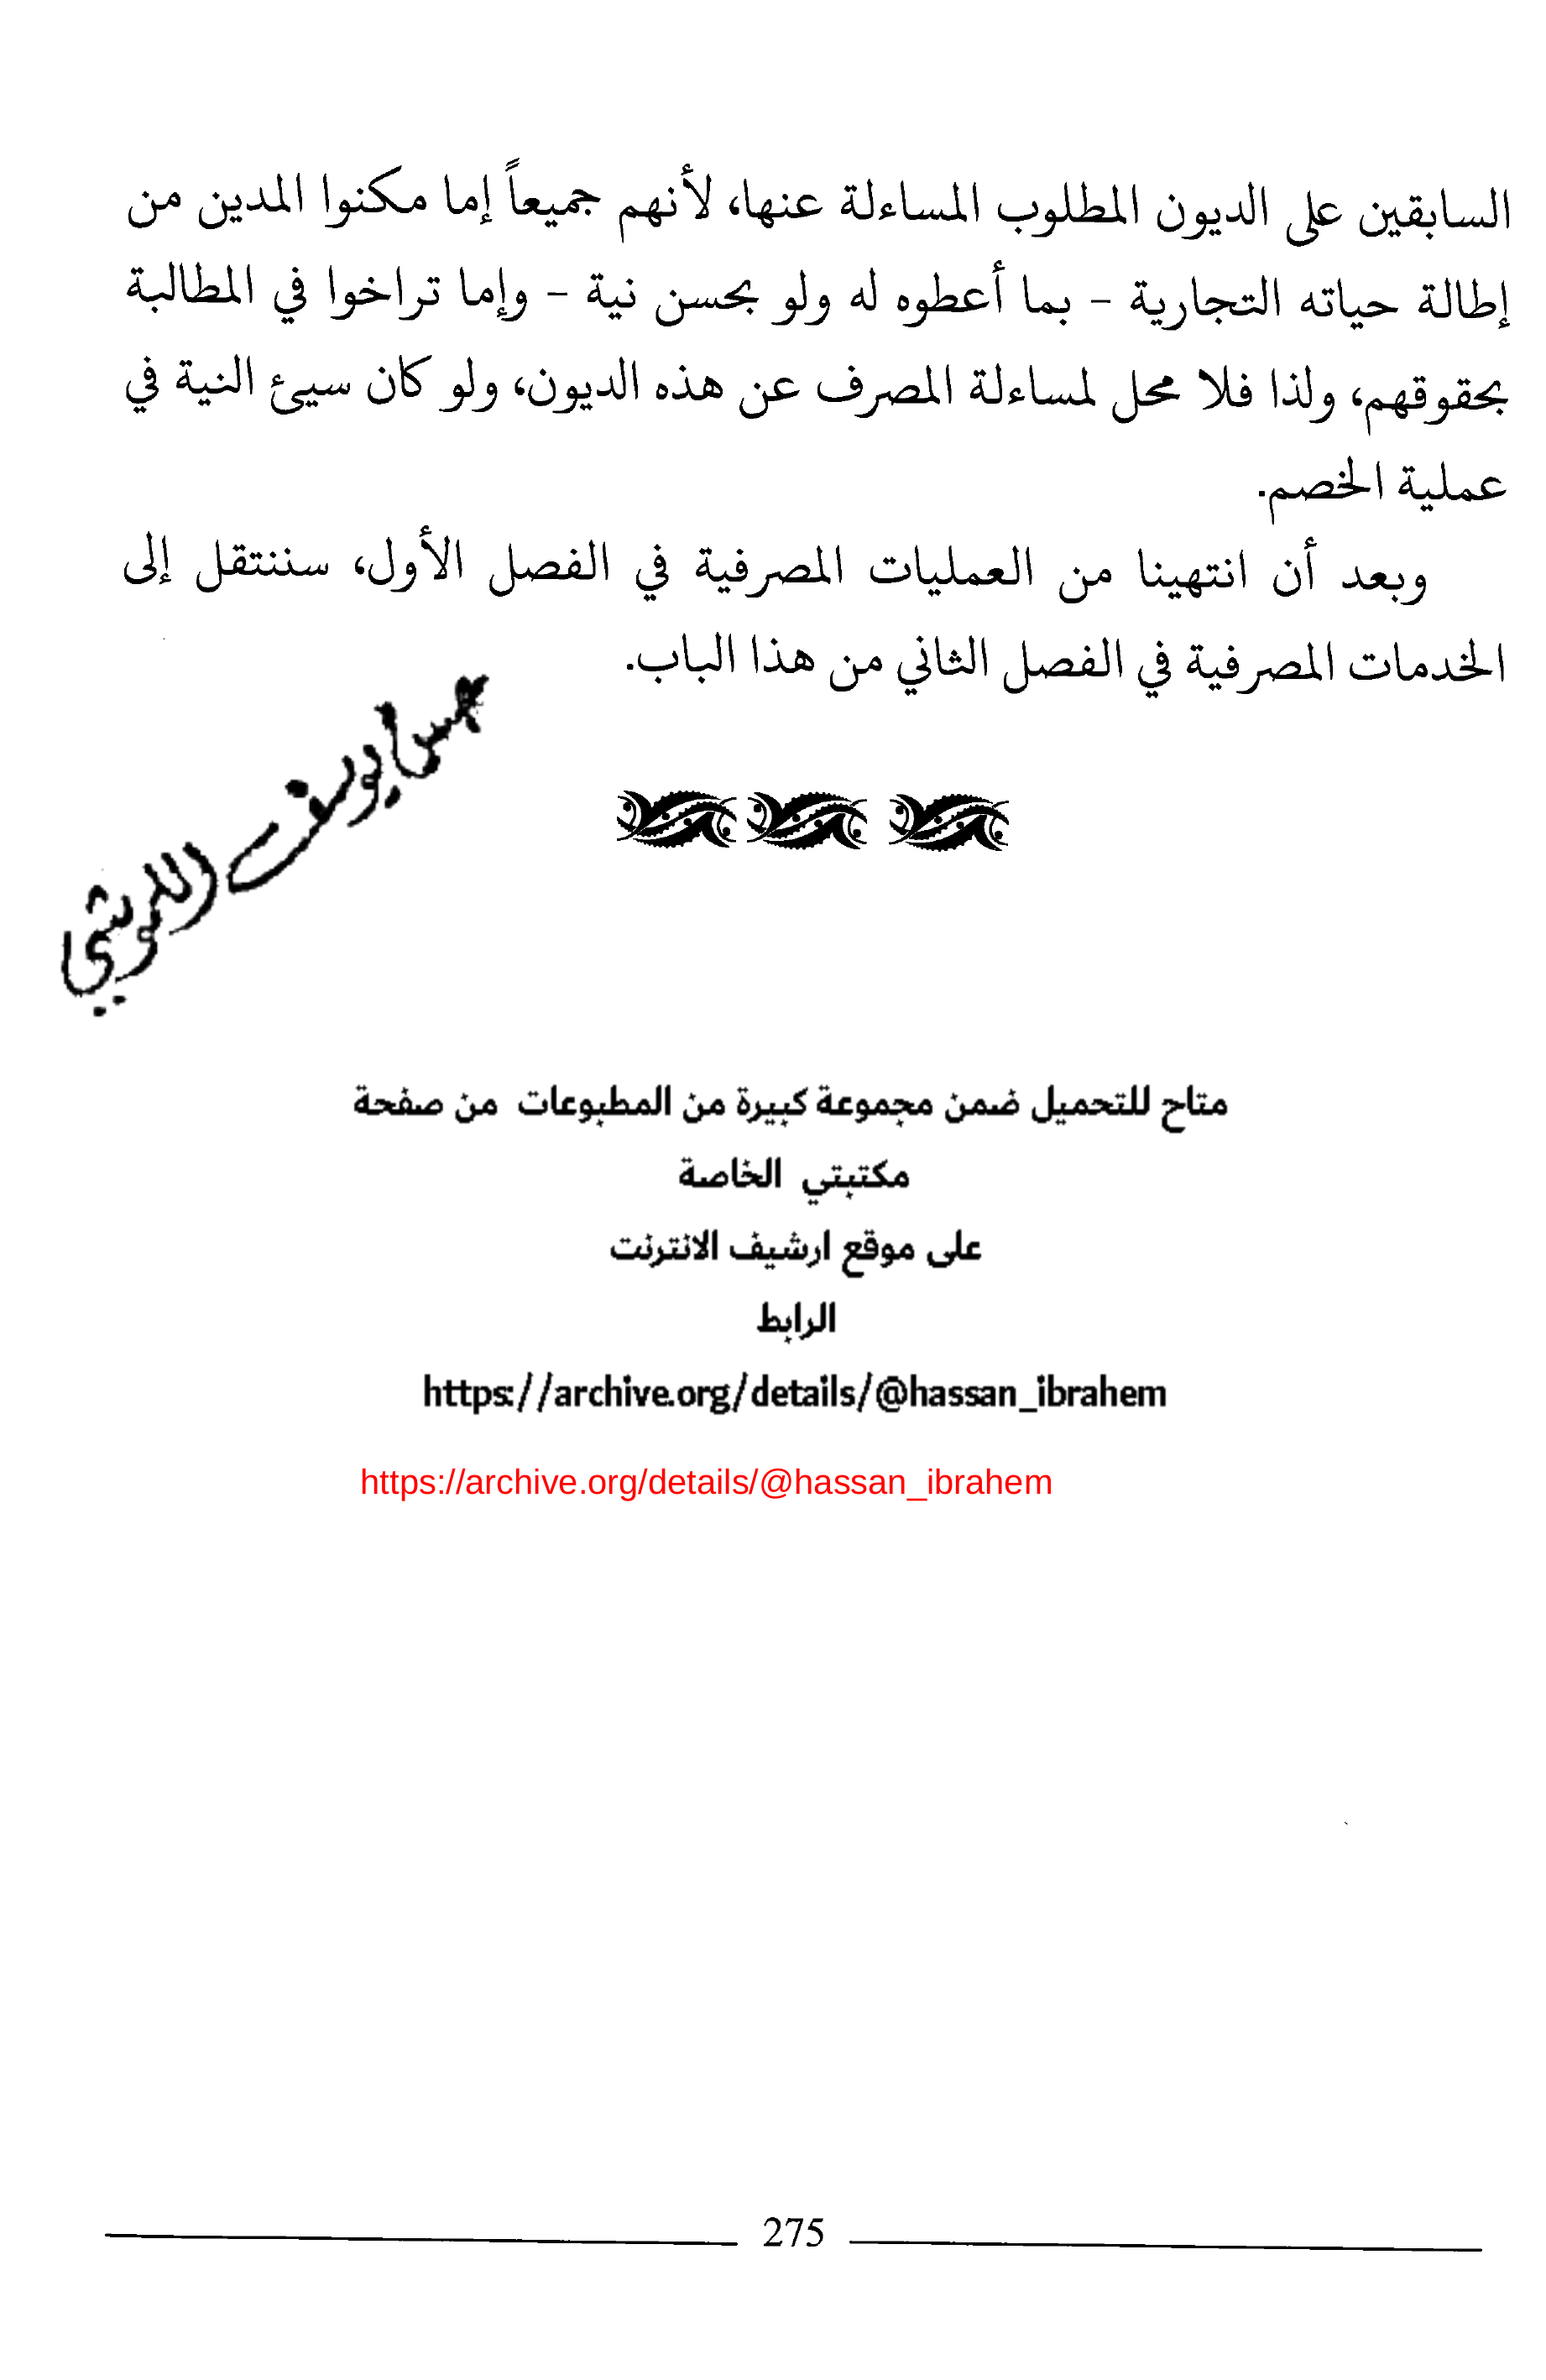 السابقين على الديون المطلوب المساءلة عنها، لأنهم جميعاً إما مكنوا المدين من
إطالة حياته التجارية - بما أعطوه له ولو بحسن نية - وإما تراخوا في المطالبة
بحقوقهم، ولذا فلا محل لمساءلة المصرف عن هذه الديون، ولو كان سيئ النية في
عملية الخصم.
وبعد أن انتهينا من العمليات المصرفية في الفصل الأول، سننتقل إلى
الخدمات المصرفية في الفصل الثاني من هذا الباب.
يوسف
متاح للتحميل ضمن مجموعة كبيرة من المطبوعات من صفحة
مكتبتي الخاصة
على موقع ارشيف الانترنت
الرابط
https://archive.org/details/@hassan_ibrahem
https://archive.org/details/@hassan_ibrahem
275